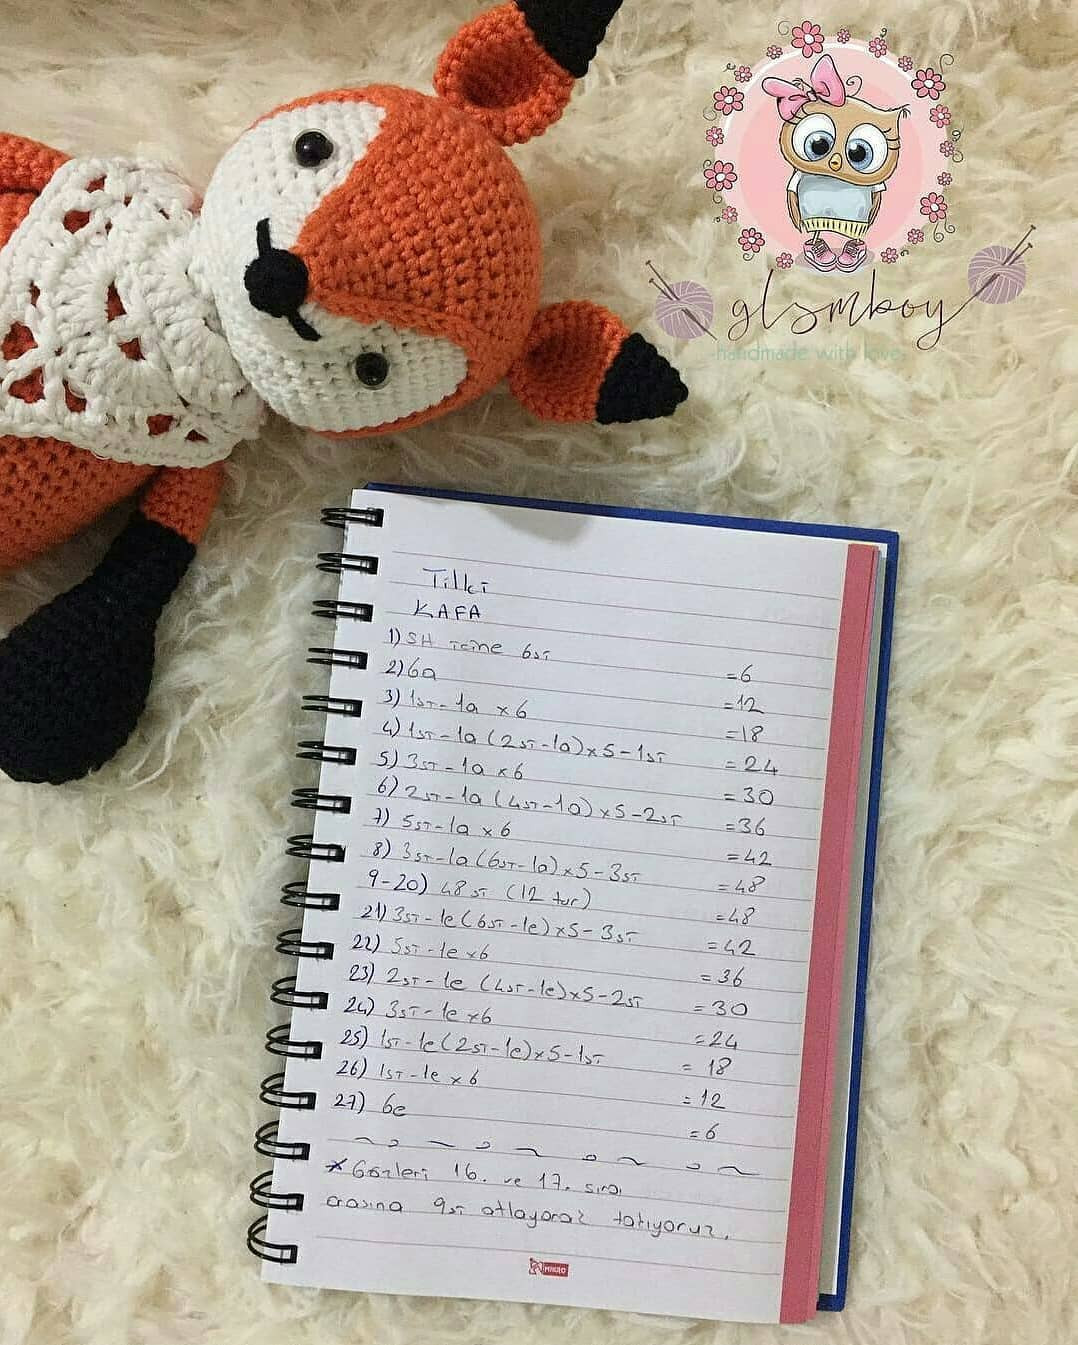 glsmboy
-handmade with love-
Tilki
KAFA
1) SH içine 6sı =6
2) 6a =12
3) 1sı-1a x6 =18
4) 1sı-1a (2sı-1a)x5-1sı =24
5) 3sı-1a x6 =30
6) 2sı-1a (4sı-1a)x5-2sı =36
7) 5sı-1a x6 =42
8) 3sı-1a (6sı-1a)x5-3sı =48
9-20) 48sı (12 tur) =48
21) 3sı-1e (6sı-1e)x5-3sı =42
22) 5sı-1e x6 =36
23) 2sı-1e (4sı-1e)x5-2sı =30
24) 3sı-1e x6 =24
25) 1sı-1e (2sı-1e)x5-1sı =18
26) 1sı-1e x6 =12
27) 6e =6
* Gözleri 16. ve 17. sıra
arasına 9sı atlayarak takıyoruz.
MİKRO